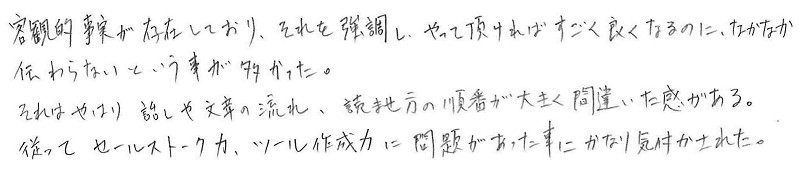 客観的事実が存在しており、それを強調し、やって頂ければすごく良くなるのに、なかなか
伝わらないという事が多かった。
それはやはり話しや文章の流れ、読ませ方の順番が大きく間違いた感がある。
従ってセールストーク力、ツール作成力に問題があった事にかなり気付かされた。